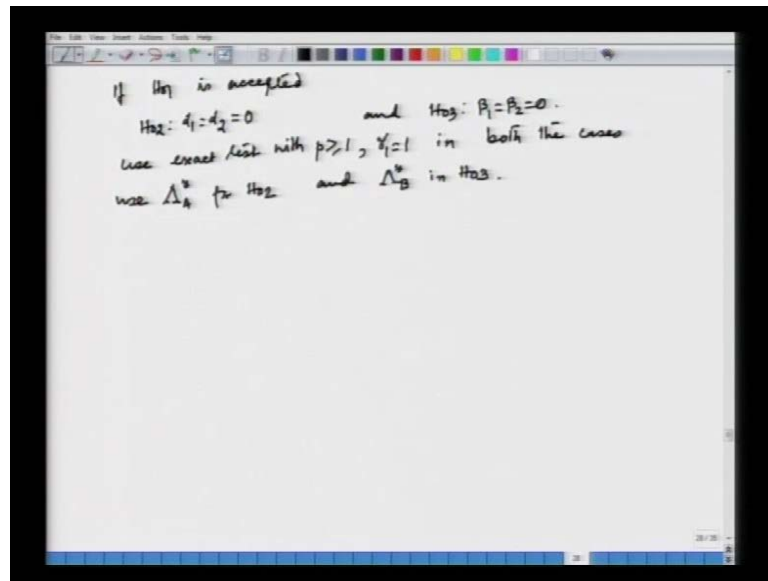 File Edit View Insert Actions Tools Help
If H01 is accepted
H02: α1 = α2 = 0 and H03: β1 = β2 = 0.
use exact test with p ≥ 1, γ1 = 1 in both the cases
use Λ*A for H02 and Λ*B in H03.